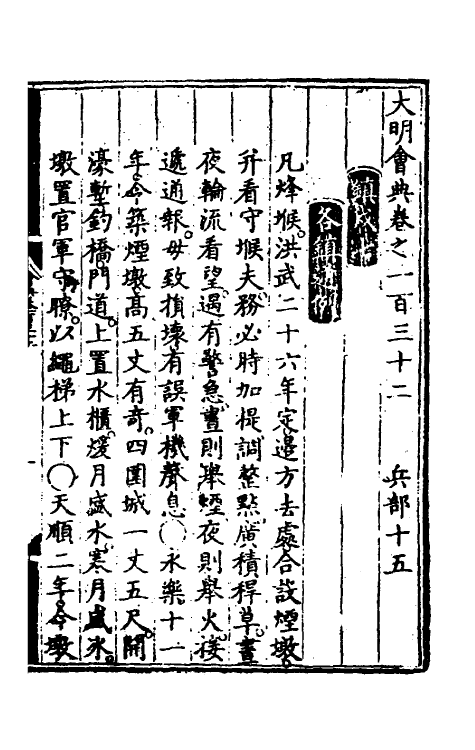 大明會典卷之一百三十二　兵部十五
鎮戍七
各鎮通例
凡烽堠。洪武二十六年定邊方去處合設煙墩。
并看守堠夫。務必時加提調整點。廣積稈草。晝
夜輪流看望。遇有警急。晝則舉煙。夜則舉火。接
遞通報。毋致損壞有誤軍機聲息○永樂十一
年。令築煙墩。高五丈有奇。四圍城一丈五尺。開
濠塹釣橋門道。上置水櫃。煖月盛水。寒月盛冰。
墩置官軍守瞭。以繩梯上下○天順二年。令墩